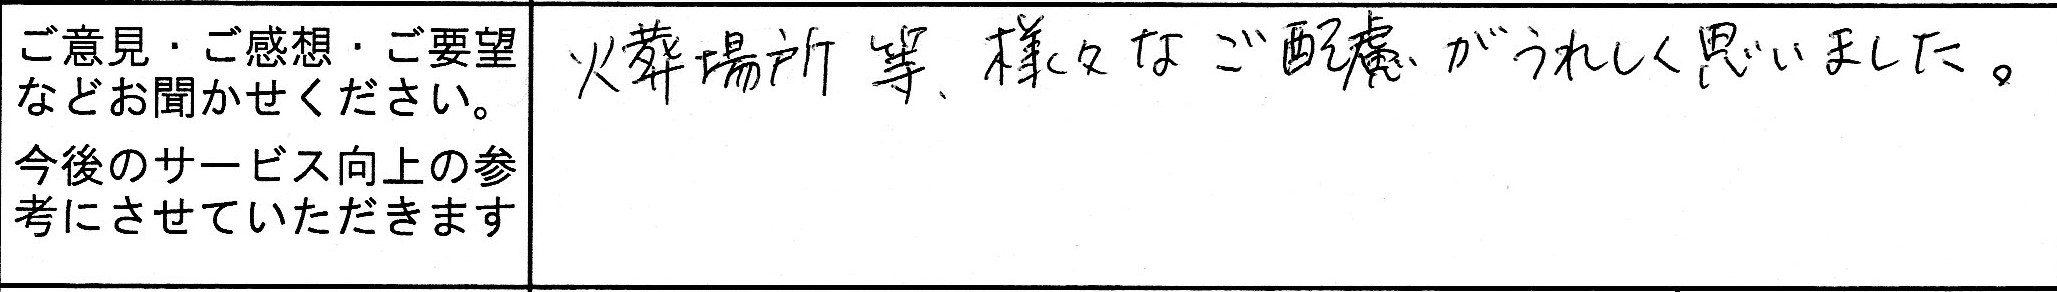 ご意見・ご感想・ご要望
などお聞かせください。
今後のサービス向上の参
考にさせていただきます
火葬場所等、様々なご配慮がうれしく思いました。